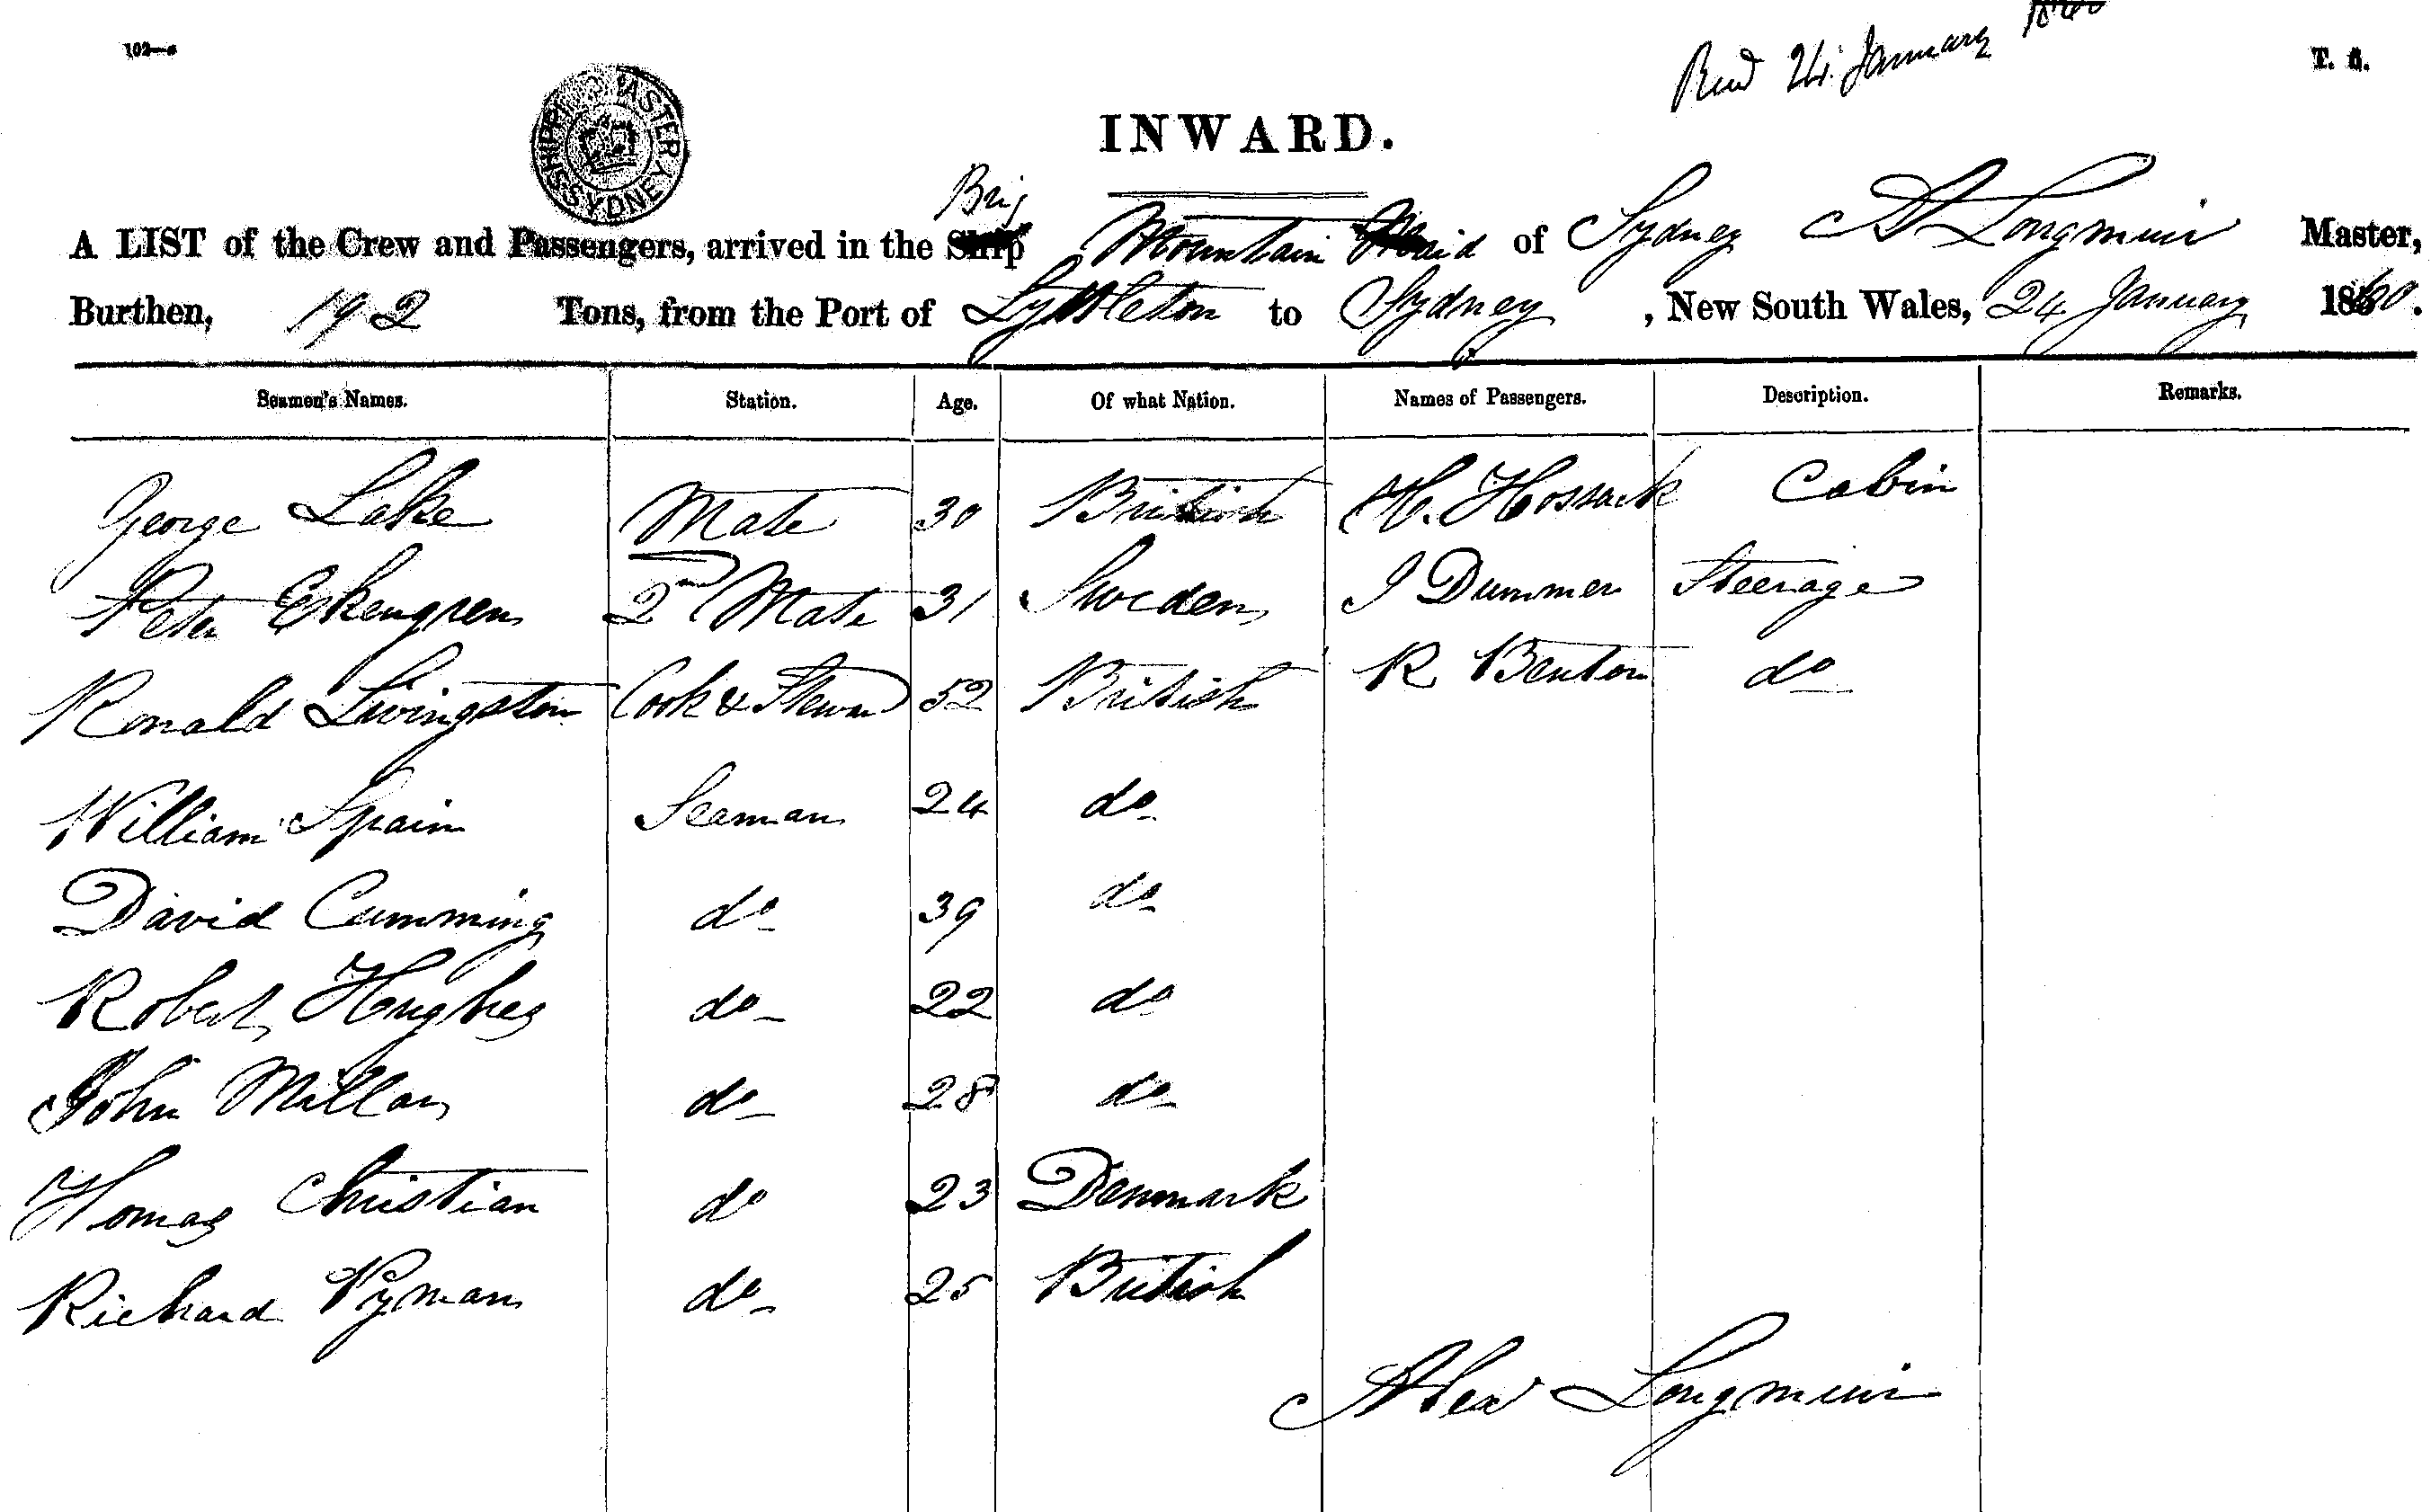 102—
Recd 24 January 1860
T. 6.
SHIPPING MASTER SYDNEY
INWARD.
Brig
A LIST of the Crew and Passengers, arrived in the Ship Mountain Maid of Sydney A Longmuir Master,
Burthen, 192 Tons, from the Port of Lyttleton to Sydney, New South Wales, 24 January 1860.
Seamen's Names. Station. Age. Of what Nation. Names of Passengers. Description. Remarks.
George Lake Mate 30 British H. Hossack Cabin
Peter Ekengren 2nd Mate 31 Sweden J Dummer Steerage
Ronald Livingston Cook & Stewd 52 British R Benton do
William Spain Seaman 24 do
David Cumming do 39 do
Robert Hughes do 22 do
John Millan do 28 do
Thomas Christian do 23 Denmark
Richard Pyman do 25 British
Alex Longmuir